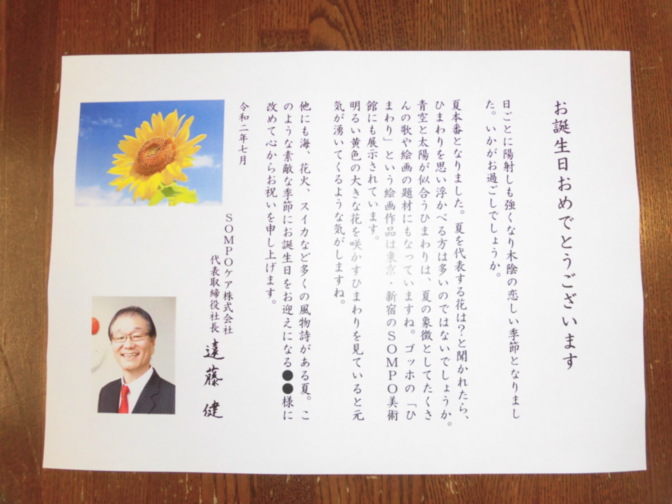 お誕生日おめでとうございます
日ごとに陽射しも強くなり木陰の恋しい季節となりまし
た。いかがお過ごしでしょうか。
夏本番となりました。夏を代表する花は？と聞かれたら、
ひまわりを思い浮かべる方は多いのではないでしょうか。
青空と太陽が似合うひまわりは、夏の象徴としてたくさ
んの歌や絵画の題材にもなっていますね。ゴッホの「ひ
まわり」という絵画作品は東京・新宿のSOMPO美術
館にも展示されています。
明るい黄色の大きな花を咲かすひまわりを見ていると元
気が湧いてくるような気がしますね。
他にも海、花火、スイカなど多くの風物詩がある夏。こ
のような素敵な季節にお誕生日をお迎えになる●●様に
改めて心からお祝いを申し上げます。
令和二年七月
SOMPOケア株式会社
代表取締役社長 遠藤 健